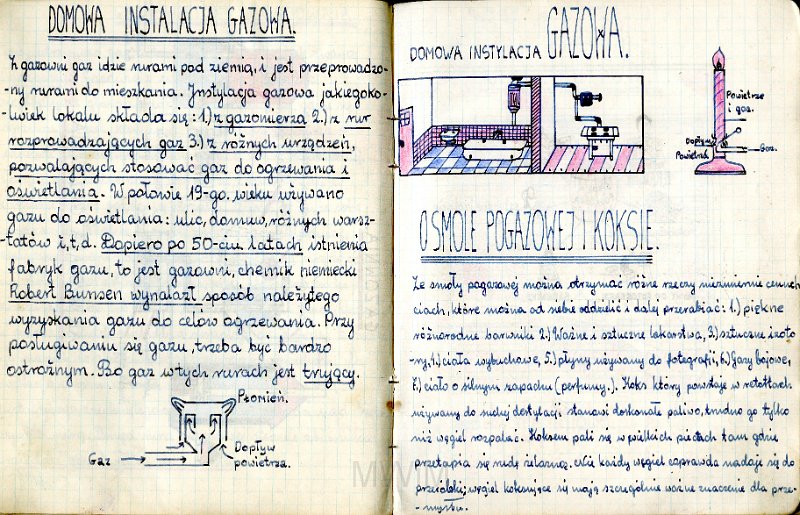 DOMOWA INSTALACJA GAZOWA.
Z gazowni gaz idzie rurami pod ziemią, i jest przeprowadzo-
-ny rurami do mieszkania. Instylacja gazowa jakiegoko-
-lwiek lokalu składa się: 1.) z gazomierza 2.) z rur
rozprowadzających gaz 3.) z różnych urządzeń,
pozwalających stosować gaz do ogrzewania i
oświetlania. W połowie 19-go. wieku używano
gazu do oświetlania: ulic, domuw, różnych warsz-
-tatów i, t, d. Dopiero po 50-ciu latach istnienia
fabryk gazu, to jest gazowni, chemik niemiecki
Robert Bunsen wynalazł sposób należytego
wyzyskania gazu do celów ogrzewania. Przy
posługiwaniu się gazu, trzeba być bardzo
ostrożnym. Bo gaz w tych rurach jest trujący.
Płomień.
Gaz
Dopływ
powietrza.
DOMOWA INSTYLACJA GAZOWA.
Powietrze
i gaz.
Dopływ
Powietrza
Gaz.
O SMOLE POGAZOWEJ I KOKSIE.
Ze smoły pogazowej można otrzymać różne rzeczy niezmiernie
ciach, które można od siebie oddzielić i dalej przerabiać: 1.) piękne
różnorodne barwniki 2.) Ważne i sztuczne lekarstwa, 3.) sztuczne
4.) ciała wybuchowe, 5.) płyny używamy do fotografii, 6.) gazy bojowe,
7.) ciało o silnym zapachu (perfumy.). Koks który powstaje w retortach
używamy do suchej destylacji stanowi doskonałe paliwo, trudno go tylko
niż węgiel rozpalać. Koksem pali się w wielkich piecach tam gdzie
przetapia się rudę żelazną. Nie każdy węgiel zaprawda nadaje się do
przeróbki; węgiel koksujące się mają szczególnie ważne znaczenie dla prze-
-mysłu.
MWM